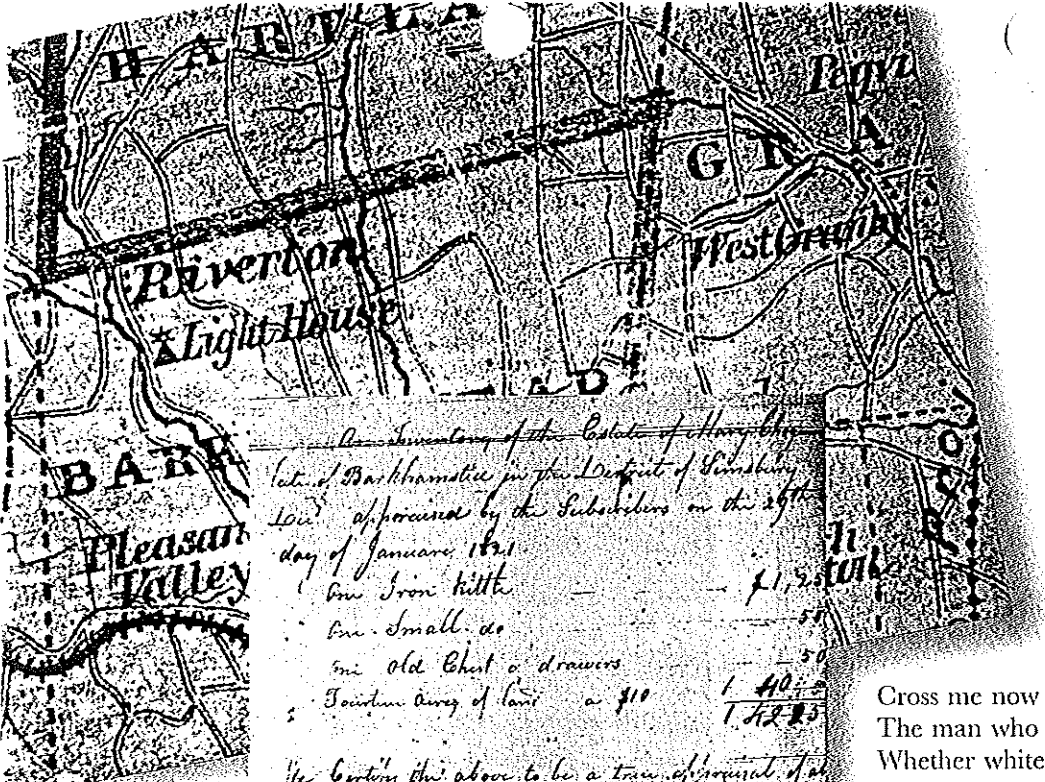 HARTLA
Pegvi
GRA
Riverton
West Granby
Light House
AD
BARK
Pleasan
Valley
An Inventory of the Estate of Mary Chu
late of Barkhamsted in the District of Simsbury
appraised by the Subscribers on the 29th
day of January 1821
One Iron kittle $1,25
One Small do 50
one Old Chest o drawers 50
Fourtun acres of land a $10 140
142 25
We Certify the above to be a true appraisal of
Cross me now
The man who
Whether white